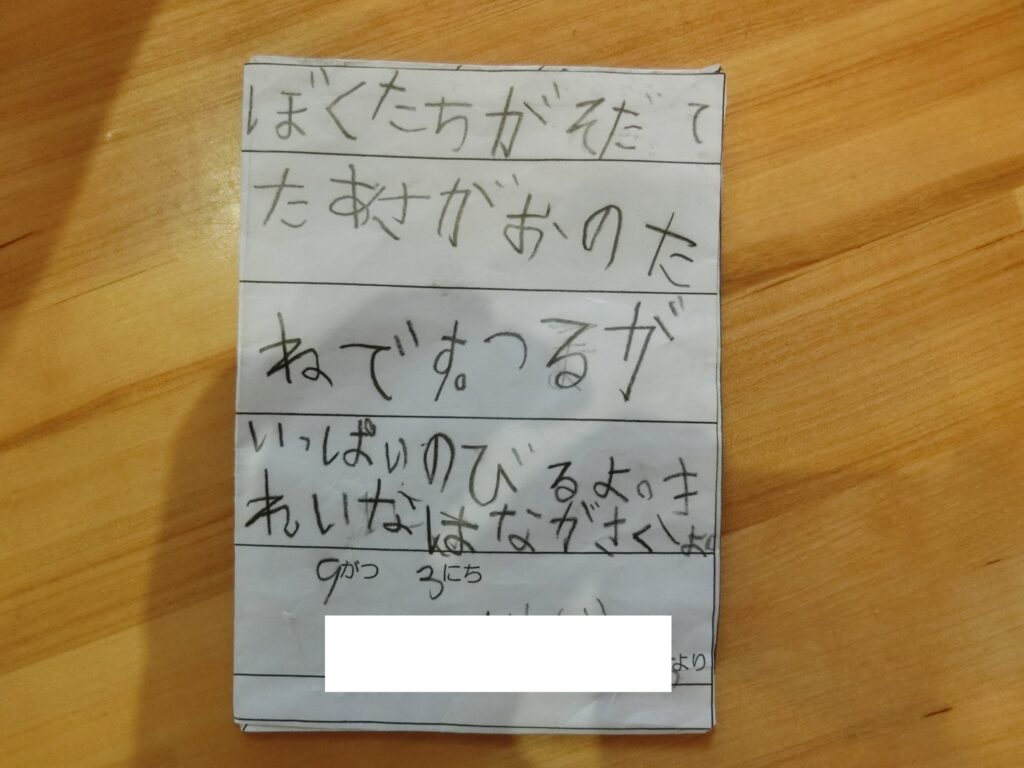 ぼくたちがそだて
たあさがおのた
ねです。つるが
いっぱいのびるよ。き
れいなはながさくよ。
9がつ 3にち
より